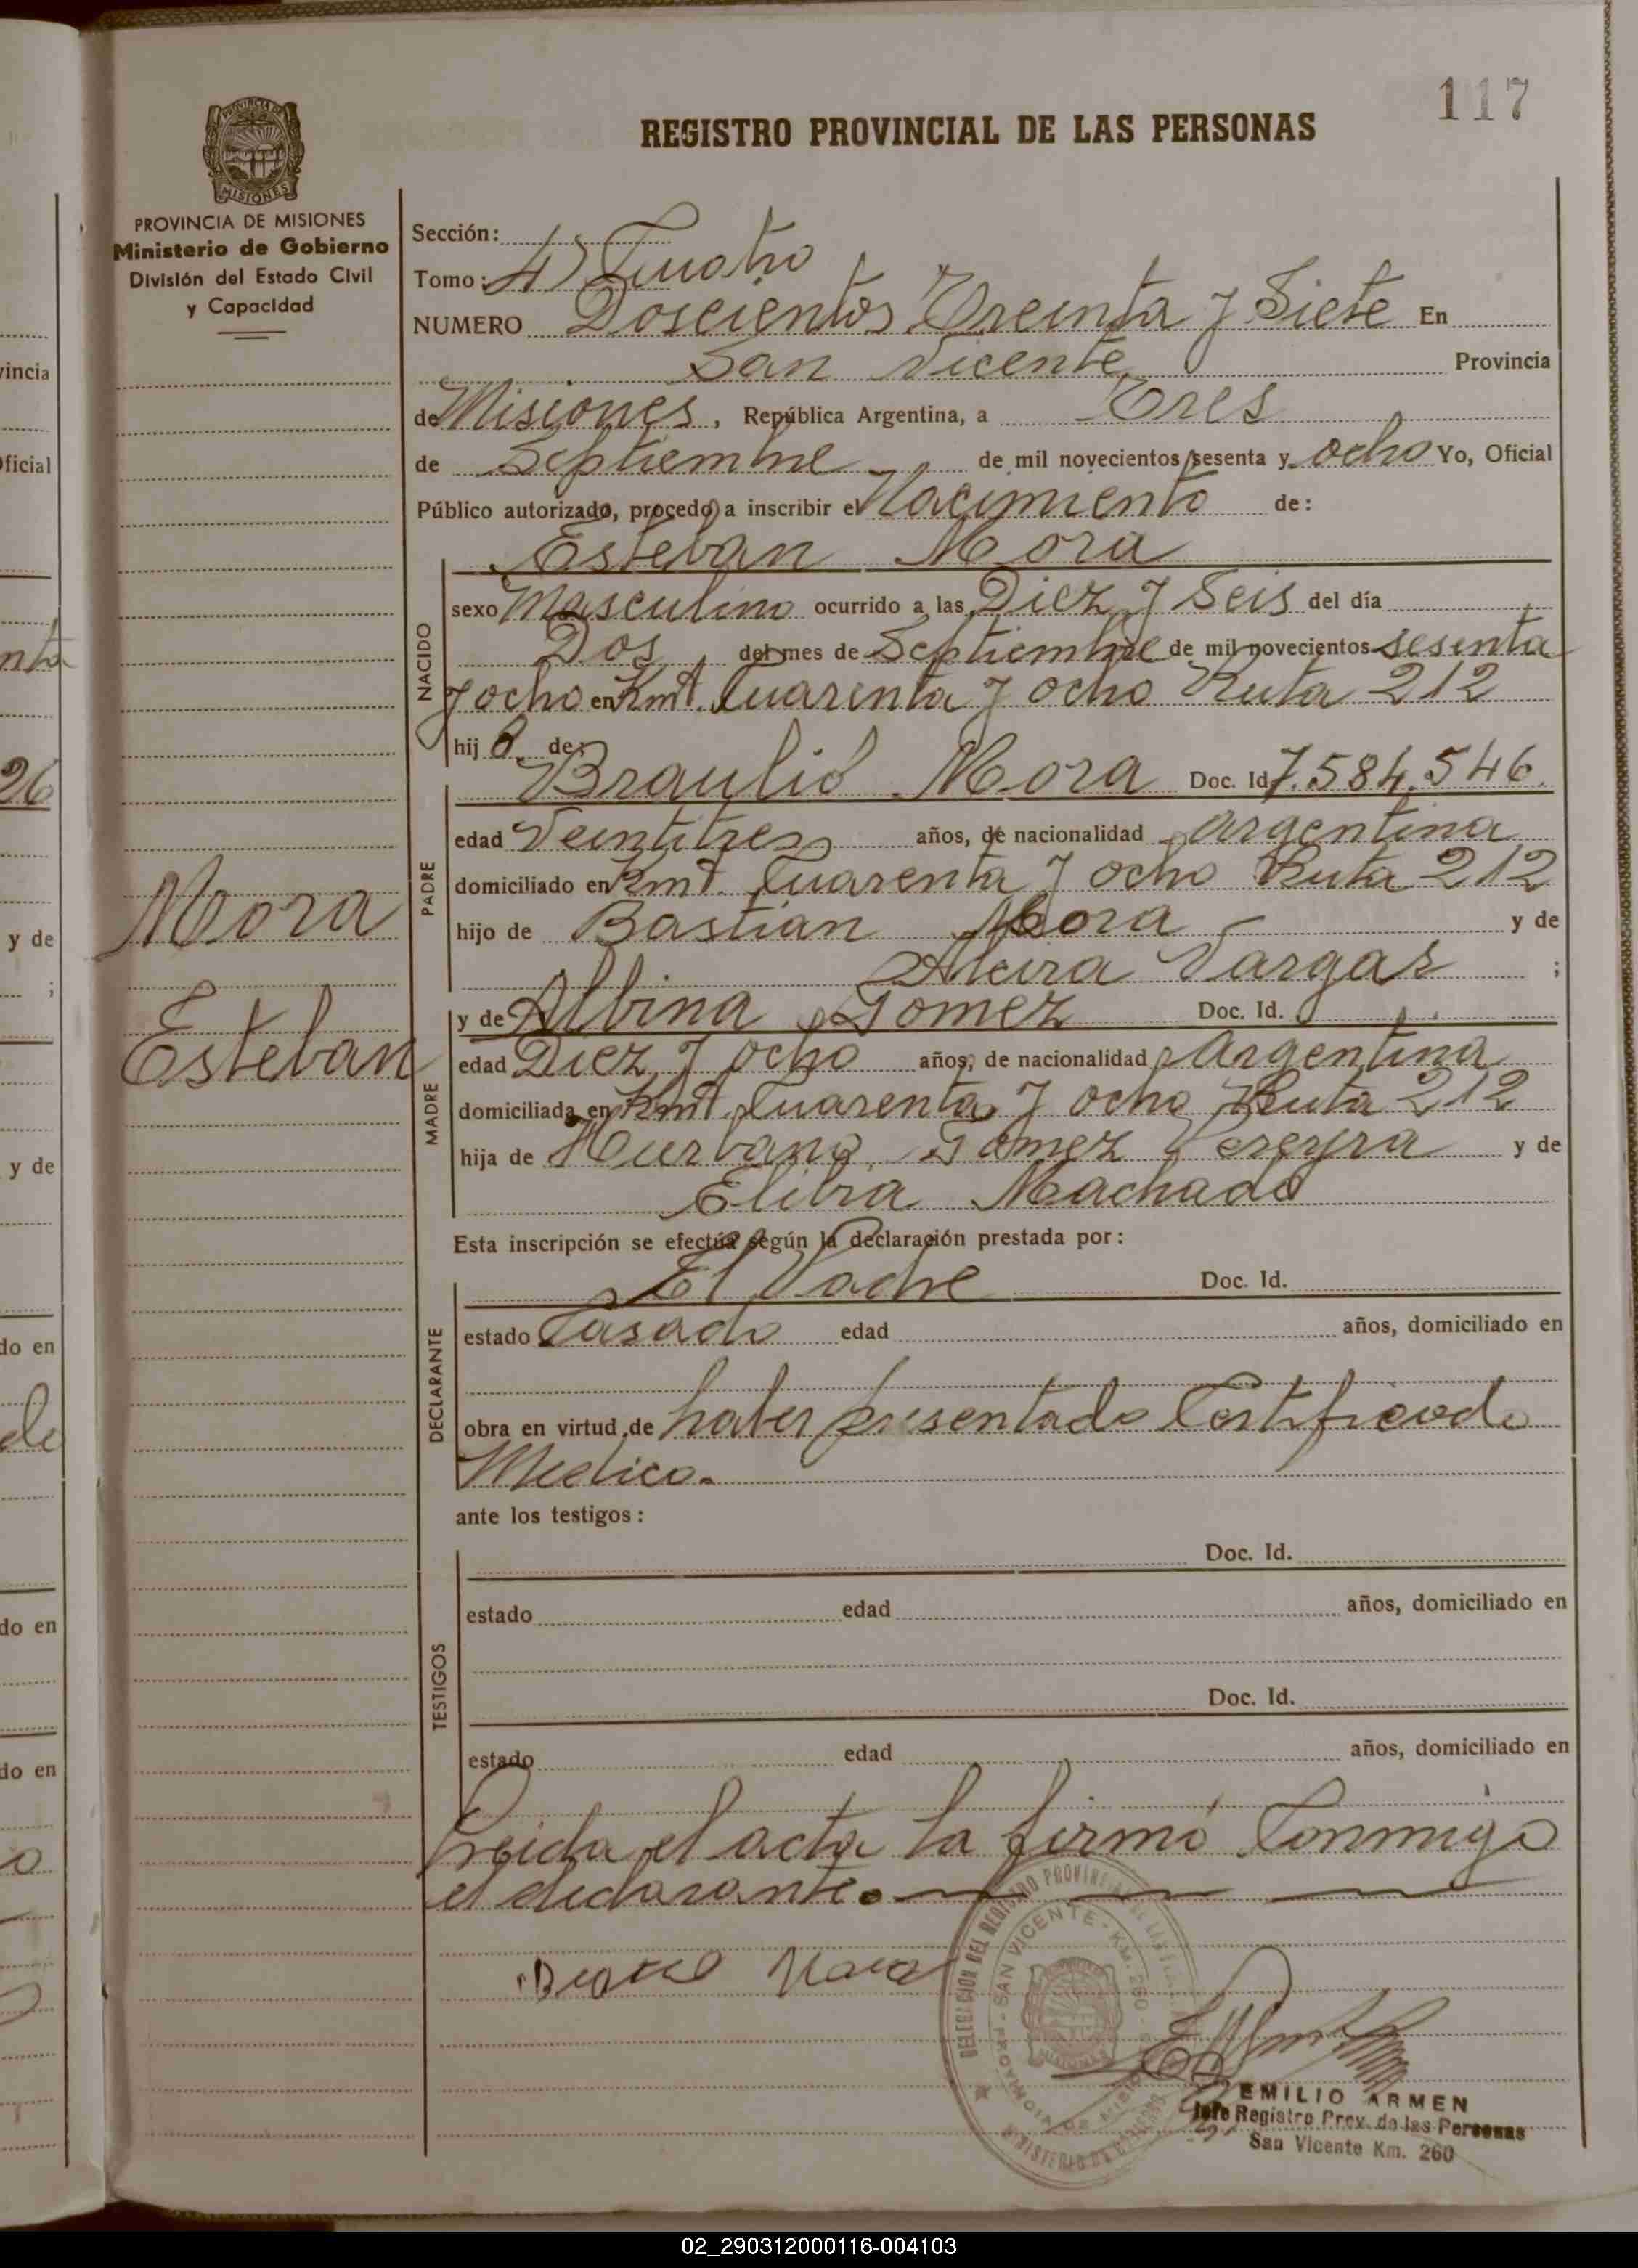 117
REGISTRO PROVINCIAL DE LAS PERSONAS
PROVINCIA DE MISIONES
Ministerio de Gobierno
División del Estado Civil
y Capacidad
Sección:
Tomo: 4) Cuatro
NUMERO Doscientos Treinta y Siete En
San Vicente Provincia
de Misiones, República Argentina, a Tres
de Septiembre de mil novecientos sesenta y ocho Yo, Oficial
Público autorizado, procedo a inscribir el Nacimiento de:
Esteban Mora
NACIDO
sexo Masculino ocurrido a las Diez y Seis del día
Dos del mes de Septiembre de mil novecientos sesenta
y ocho en Kmt. Cuarenta y ocho Ruta 212
hijo de:
Braulio Mora Doc. Id 7.584.546.
PADRE
edad Veintitres años, de nacionalidad Argentina
domiciliado en Kmt. Cuarenta y ocho Ruta 212
hijo de Bastian Mora y de
Alcira Vargas ;
y de Albina Gomez Doc. Id.
MADRE
edad Diez y ocho años, de nacionalidad Argentina
domiciliada en Kmt. Cuarenta y ocho Ruta 212
hija de Hurbano Gomez Pereyra y de
Elibra Machado
Mora
Esteban
Esta inscripción se efectúa según la declaración prestada por:
El Padre Doc. Id.
DECLARANTE
estado Casado edad años, domiciliado en
obra en virtud de haber presentado Certificado
Medico.
ante los testigos:
Doc. Id.
TESTIGOS
estado edad años, domiciliado en
Doc. Id.
estado edad años, domiciliado en
Leida el acta la firmó Conmigo
el declarante.
Mora
DELEGACION DEL REGISTRO PROVINCIAL DE LAS
SAN VICENTE - KM. 260
PROVINCIA DE MISIONES
MINISTERIO DE GOBIERNO
EMILIO ARMEN
Jefe Registro Prov. de las Personas
San Vicente Km. 260
02_290312000116-004103